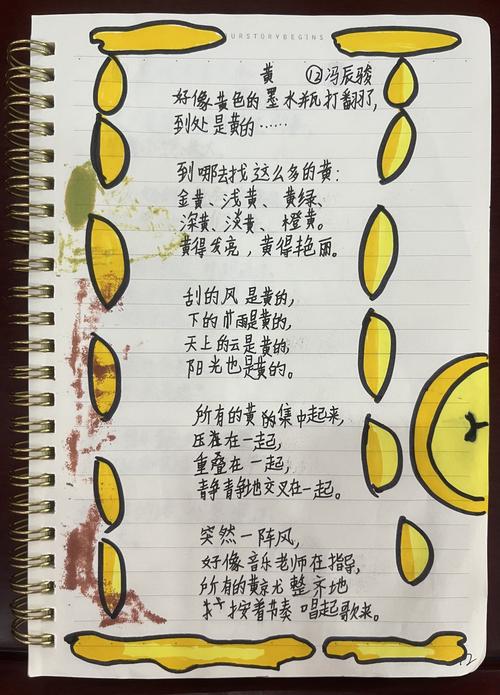 OURSTORYBEGINS
黄 ⑫冯辰骏
好像黄色的墨水瓶打翻了,
到处是黄的……
到哪去找这么多的黄:
金黄、浅黄、黄绿、
深黄、淡黄、橙黄。
黄得发亮,黄得艳丽。
刮的风是黄的,
下的雨是黄的,
天上的云是黄的,
阳光也是黄的。
所有的黄的集中起来,
压在一起,
重叠在一起,
静静地交叉在一起。
突然一阵风,
好像音乐老师在指导,
所有的黄整齐地
按着节奏唱起歌来。
12